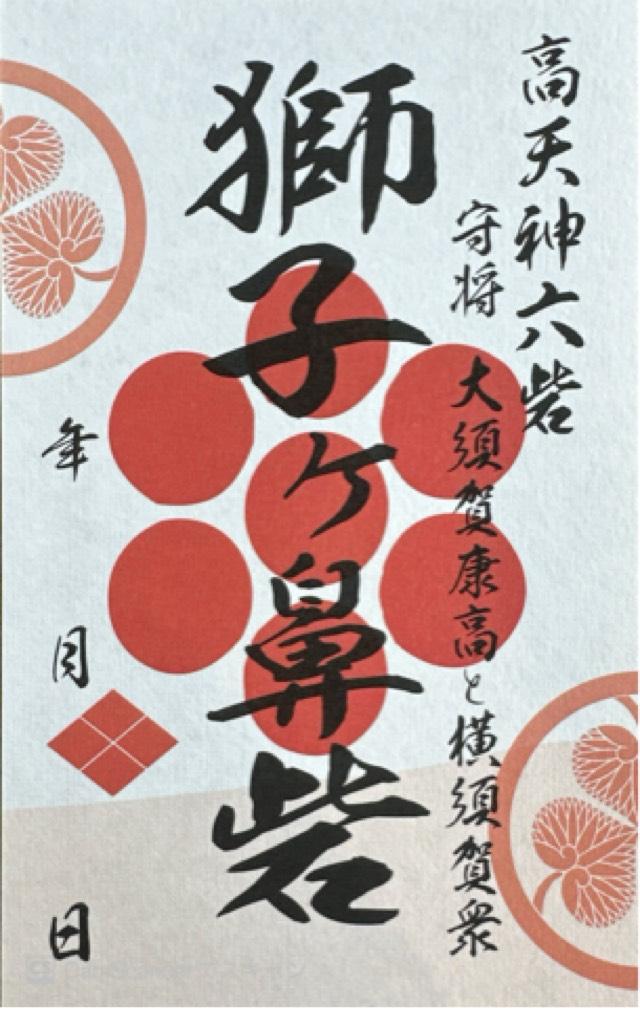 高天神六砦
守将 大須賀康高と横須賀衆
獅子ヶ鼻砦
年 月 日